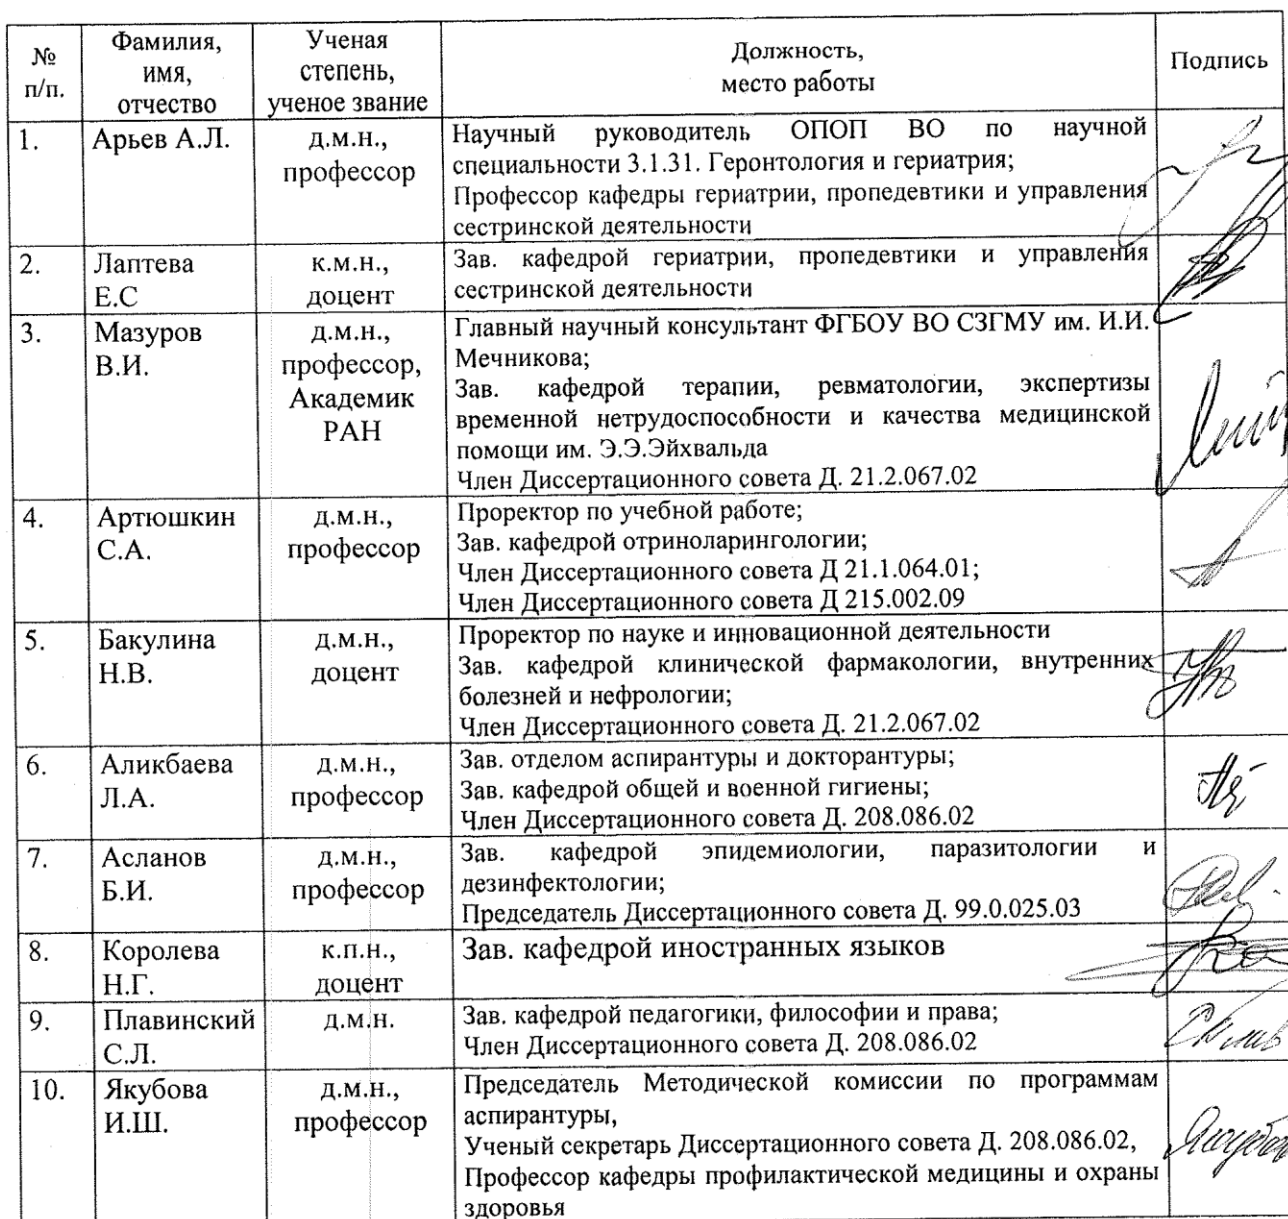 № п/п.
Фамилия,
имя,
отчество
Ученая
степень,
ученое звание
Должность,
место работы
Подпись
1.
Арьев А.Л.
д.м.н.,
профессор
Научный руководитель ОПОП ВО по научной
специальности 3.1.31. Геронтология и гериатрия;
Профессор кафедры гериатрии, пропедевтики и управления
сестринской деятельности
2.
Лаптева
Е.С
к.м.н.,
доцент
Зав. кафедрой гериатрии, пропедевтики и управления
сестринской деятельности
3.
Мазуров
В.И.
д.м.н.,
профессор,
Академик
РАН
Главный научный консультант ФГБОУ ВО СЗГМУ им. И.И.
Мечникова;
Зав. кафедрой терапии, ревматологии, экспертизы
временной нетрудоспособности и качества медицинской
помощи им. Э.Э.Эйхвальда
Член Диссертационного совета Д. 21.2.067.02
4.
Артюшкин
С.А.
д.м.н.,
профессор
Проректор по учебной работе;
Зав. кафедрой отриноларингологии;
Член Диссертационного совета Д 21.1.064.01;
Член Диссертационного совета Д 215.002.09
5.
Бакулина
Н.В.
д.м.н.,
доцент
Проректор по науке и инновационной деятельности
Зав. кафедрой клинической фармакологии, внутренних
болезней и нефрологии;
Член Диссертационного совета Д. 21.2.067.02
6.
Аликбаева
Л.А.
д.м.н.,
профессор
Зав. отделом аспирантуры и докторантуры;
Зав. кафедрой общей и военной гигиены;
Член Диссертационного совета Д. 208.086.02
7.
Асланов
Б.И.
д.м.н.,
профессор
Зав. кафедрой эпидемиологии, паразитологии и
дезинфектологии;
Председатель Диссертационного совета Д. 99.0.025.03
8.
Королева
Н.Г.
к.п.н.,
доцент
Зав. кафедрой иностранных языков
9.
Плавинский
С.Л.
д.м.н.
Зав. кафедрой педагогики, философии и права;
Член Диссертационного совета Д. 208.086.02
10.
Якубова
И.Ш.
д.м.н.,
профессор
Председатель Методической комиссии по программам
аспирантуры,
Ученый секретарь Диссертационного совета Д. 208.086.02,
Профессор кафедры профилактической медицины и охраны
здоровья